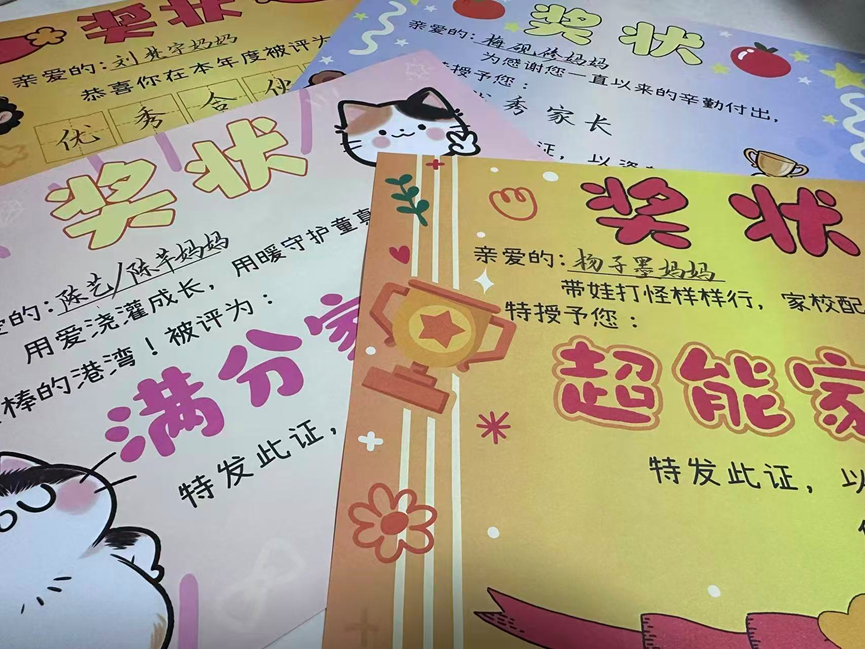 奖状
亲爱的：刘
妈妈
恭喜你在本年度被评为
优秀合伙
奖状
亲爱的：梅砚修妈妈
为感谢您一直以来的辛勤付出，
授予您：
秀家长
证，以
奖状
的：陈艺/陈芊妈妈
用爱浇灌成长，用暖守护童真
棒的港湾！被评为：
满分家
特发此证，
奖状
亲爱的：杨子墨妈妈
带娃打怪样样行，家校配
特授予您：
超能家
特发此证，以